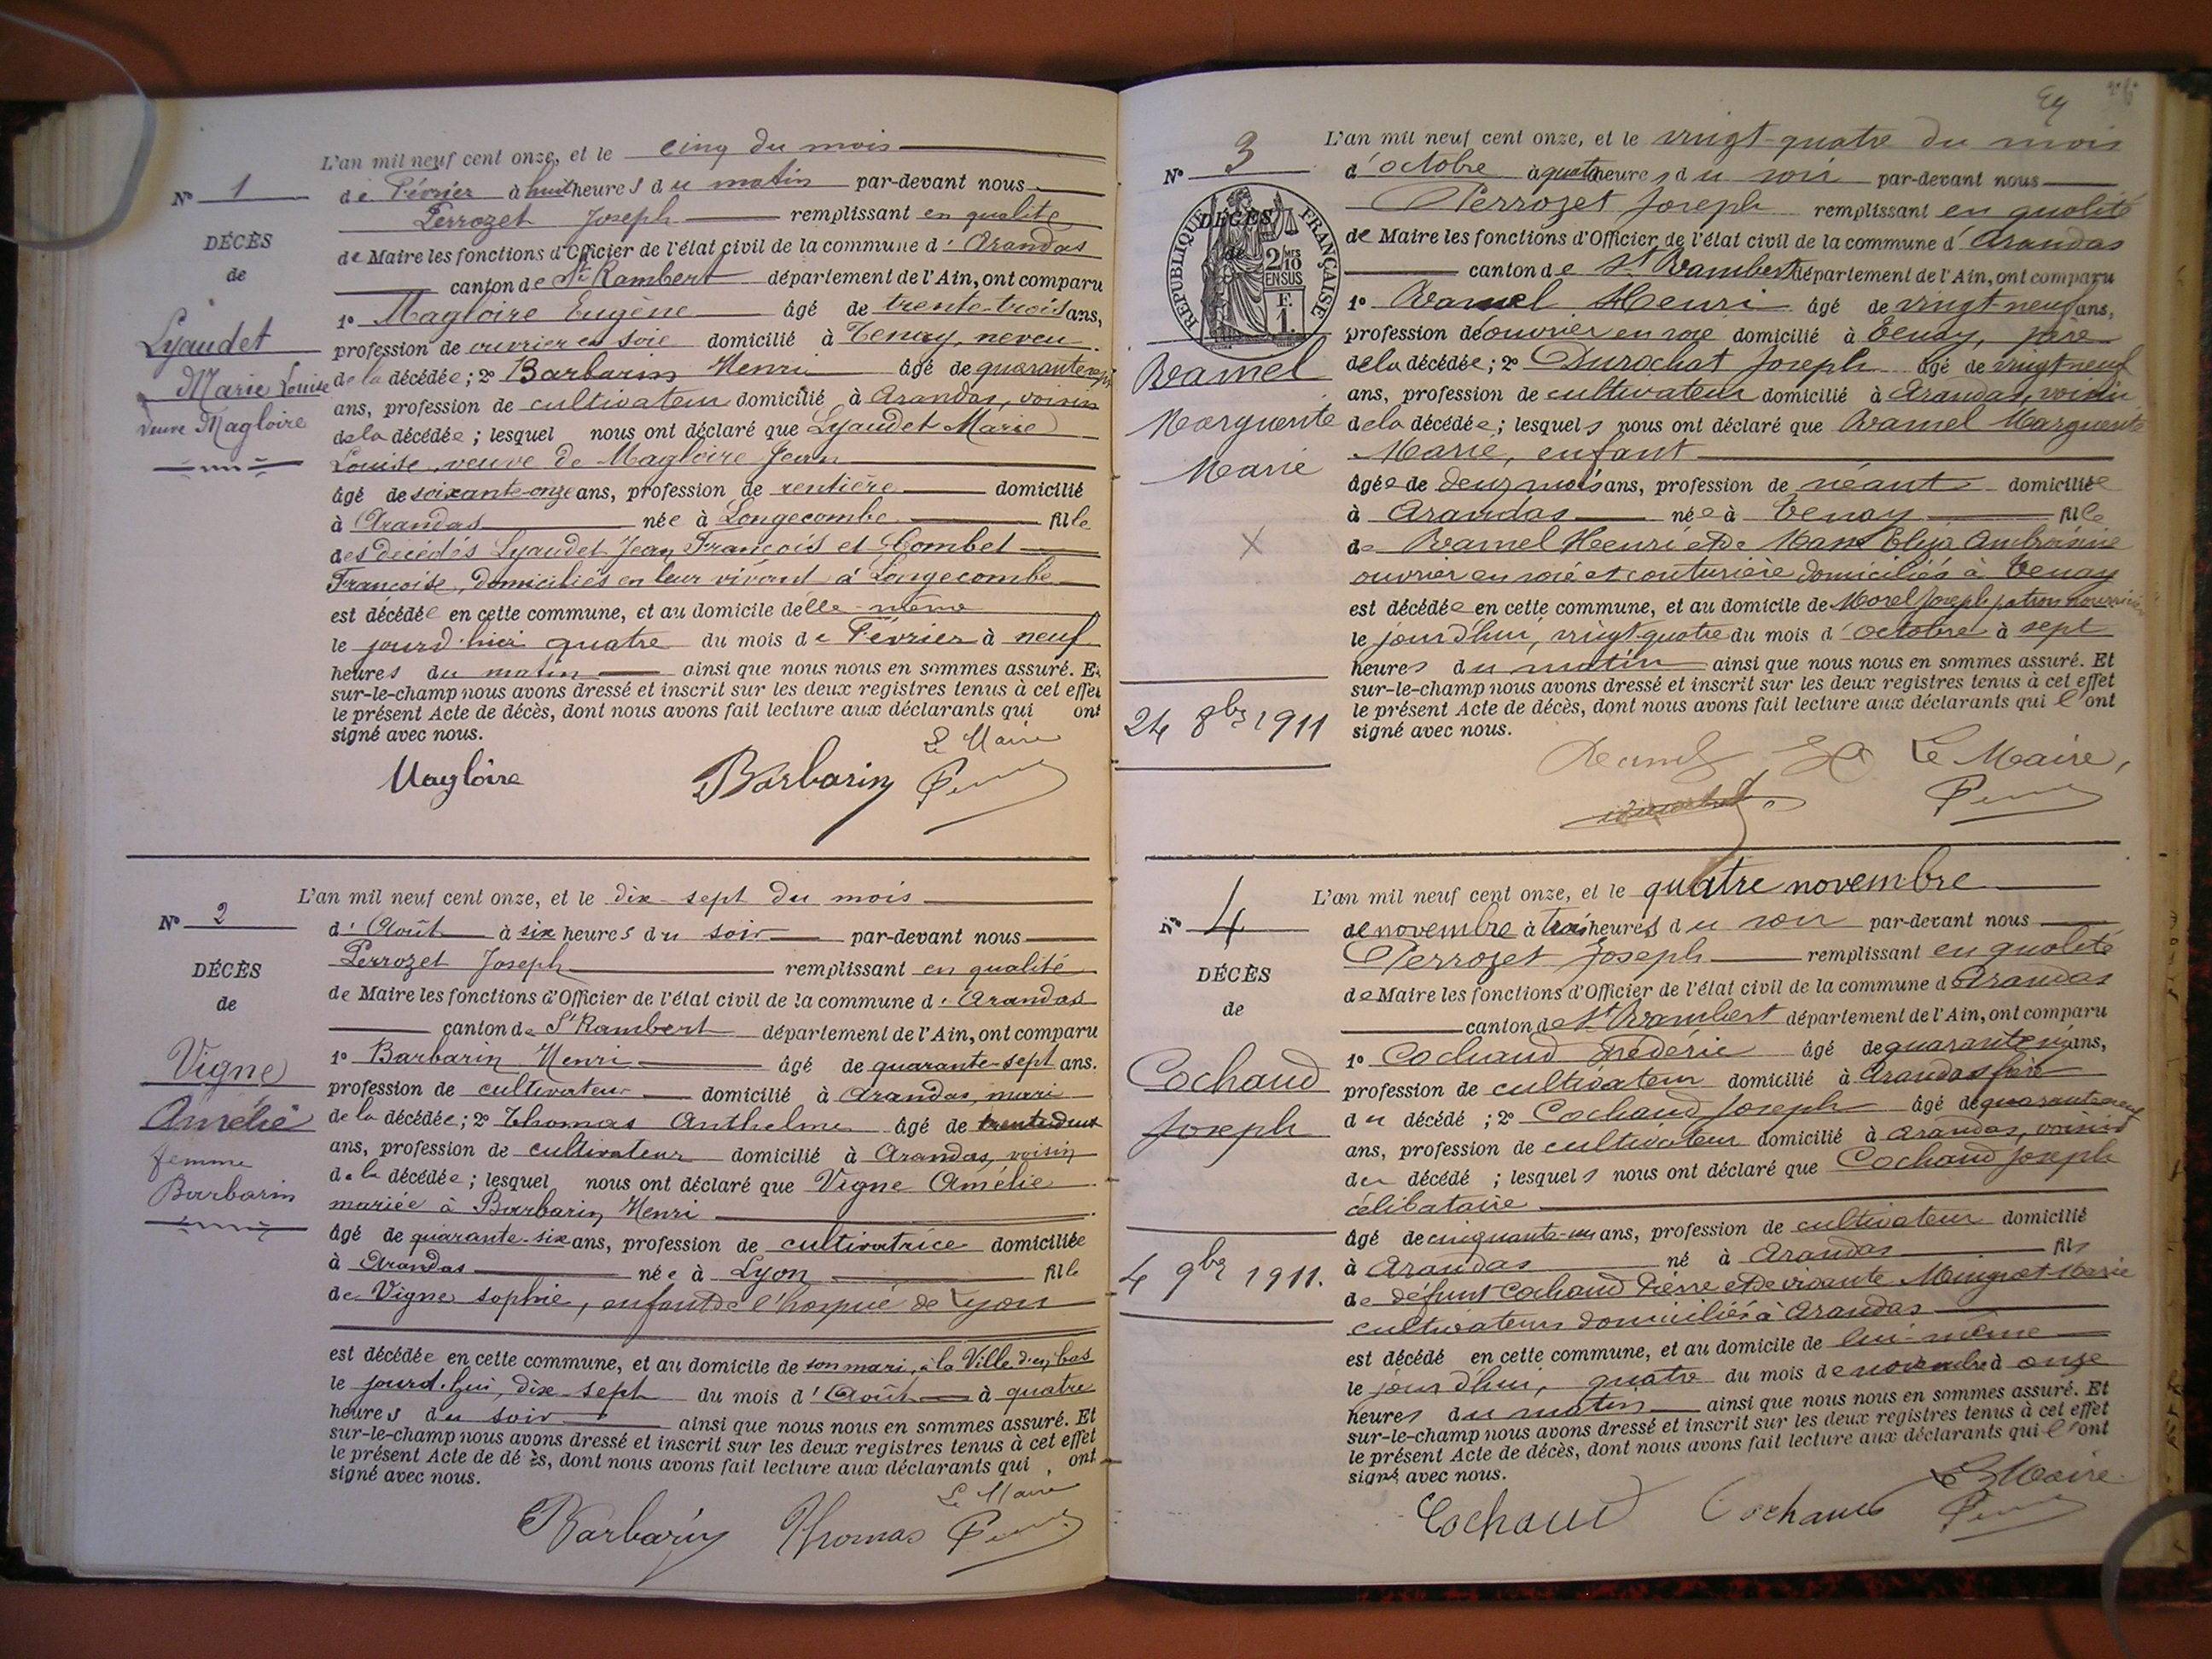 L'an mil neuf cent onze, et le cinq du mois
N° 1
de Février à huit heures du matin par-devant nous
Perrozet Joseph remplissant en qualité
DÉCÈS
de Maire les fonctions d'Officier de l'état civil de la commune d'Arandas
de
canton de St Rambert département de l'Ain, ont comparu
1° Magloire Eugène âgé de trente-trois ans,
Lyaudet
profession de ouvrier en soie domicilié à Tenay, neveu
Marie Louise
de la décédée; 2° Barbarin Henri âgé de quarante
veuve Magloire
ans, profession de cultivateur domicilié à Arandas, voisin
de la décédée; lesquel nous ont déclaré que Lyaudet Marie
Louise, veuve de Magloire Jean
âgé de soixante-onze ans, profession de rentière domicilié
à Arandas née à Longecombe fille
des décédés Lyaudet Jean François et Combet
Françoise, domiciliés en leur vivant à Longecombe
est décédée en cette commune, et au domicile d'elle-même
le jourd'hier quatre du mois de Février à neuf
heures du matin ainsi que nous nous en sommes assuré. Et
sur-le-champ nous avons dressé et inscrit sur les deux registres tenus à cet effet
le présent Acte de décès, dont nous avons fait lecture aux déclarants qui ont
signé avec nous.
Le Maire
Magloire Barbarin
L'an mil neuf cent onze, et le dix-sept du mois
N° 2
d'Août à six heures du soir par-devant nous
Perrozet Joseph remplissant en qualité
DÉCÈS
de Maire les fonctions d'Officier de l'état civil de la commune d'Arandas
de
canton de St Rambert département de l'Ain, ont comparu
1° Barbarin Henri âgé de quarante-sept ans.
Vigne
profession de cultivateur domicilié à Arandas, mari
Amélie
de la décédée; 2° Thomas Anthelme âgé de trente-deux
femme
ans, profession de cultivateur domicilié à Arandas, voisin
Barbarin
de la décédée; lesquel nous ont déclaré que Vigne Amélie
mariée à Barbarin Henri
âgé de quarante-six ans, profession de cultivatrice domiciliée
à Arandas née à Lyon fille
de Vigne Sophie, enfant de l'hospice de Lyon
est décédée en cette commune, et au domicile de son mari, à la Ville d'en bas
le jourd'hui, dix-sept du mois d'Août à quatre
heures du soir ainsi que nous nous en sommes assuré. Et
sur-le-champ nous avons dressé et inscrit sur les deux registres tenus à cet effet
le présent Acte de décès, dont nous avons fait lecture aux déclarants qui ont
signé avec nous.
Le Maire
Barbarin Thomas
L'an mil neuf cent onze, et le vingt-quatre du mois
N° 3
d'octobre à quatre heures du soir par-devant nous
Perrozet Joseph remplissant en qualité
DÉCÈS
de
RÉPUBLIQUE FRANÇAISE
2/10 MES
EN SUS
F.
1.
de Maire les fonctions d'Officier de l'état civil de la commune d'Arandas
canton de St Rambert département de l'Ain, ont comparu
1° Ramel Henri âgé de vingt-neuf ans,
profession d'ouvrier en soie domicilié à Tenay, père
Ramel
de la décédée; 2° Durochat Joseph âgé de vingt neuf
ans, profession de cultivateur domicilié à Arandas, voisin
Marguerite
de la décédée; lesquels nous ont déclaré que Ramel Marguerite
Marie
Marie, enfant
âgée de deux mois ans, profession de néant domiciliée
à Arandas née à Tenay fille
de Ramel Henri et de Eliza Ambroisine
ouvrier en soie et couturière domiciliés à Tenay
est décédée en cette commune, et au domicile de Morel Joseph
le jourd'hui, vingt-quatre du mois d'octobre à sept
heures du matin ainsi que nous nous en sommes assuré. Et
sur-le-champ nous avons dressé et inscrit sur les deux registres tenus à cet effet
24 8bre 1911
le présent Acte de décès, dont nous avons fait lecture aux déclarants qui l'ont
signé avec nous.
Le Maire,
L'an mil neuf cent onze, et le quatre novembre
N° 4
de novembre à trois heures du soir par-devant nous
Perrozet Joseph remplissant en qualité
DÉCÈS
de Maire les fonctions d'Officier de l'état civil de la commune d'Arandas
de
canton de St Rambert département de l'Ain, ont comparu
1° Cochaud Frédéric âgé de ans,
Cochaud
profession de cultivateur domicilié à Arandas frère
Joseph
du décédé; 2° Cochaud Joseph âgé de
ans, profession de cultivateur domicilié à Arandas, voisin
du décédé; lesquels nous ont déclaré que Cochaud Joseph
célibataire
âgé de cinquante-un ans, profession de cultivateur domicilié
à Arandas né à Arandas fils
4 9bre 1911.
de défunt Cochaud Pierre et de vivante Marie
cultivateurs domiciliés à Arandas
est décédé en cette commune, et au domicile de lui-même
le jourd'hui, quatre du mois de novembre à onze
heures du matin ainsi que nous nous en sommes assuré. Et
sur-le-champ nous avons dressé et inscrit sur les deux registres tenus à cet effet
le présent Acte de décès, dont nous avons fait lecture aux déclarants qui l'ont
signé avec nous.
Le Maire
Cochaud Cochaud